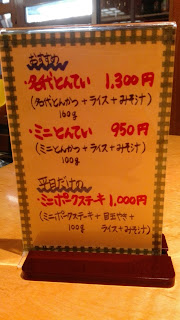 おすすめ
・名代とんてい 1,300円
(名代とんかつ + ライス + みそ汁)
160g
・ミニとんてい 950円
(ミニとんかつ + ライス + みそ汁)
100g
平日だけの
・ミニポークステーキ 1,000円
(ミニポークステーキ + 目玉やき +
100g ライス + みそ汁)